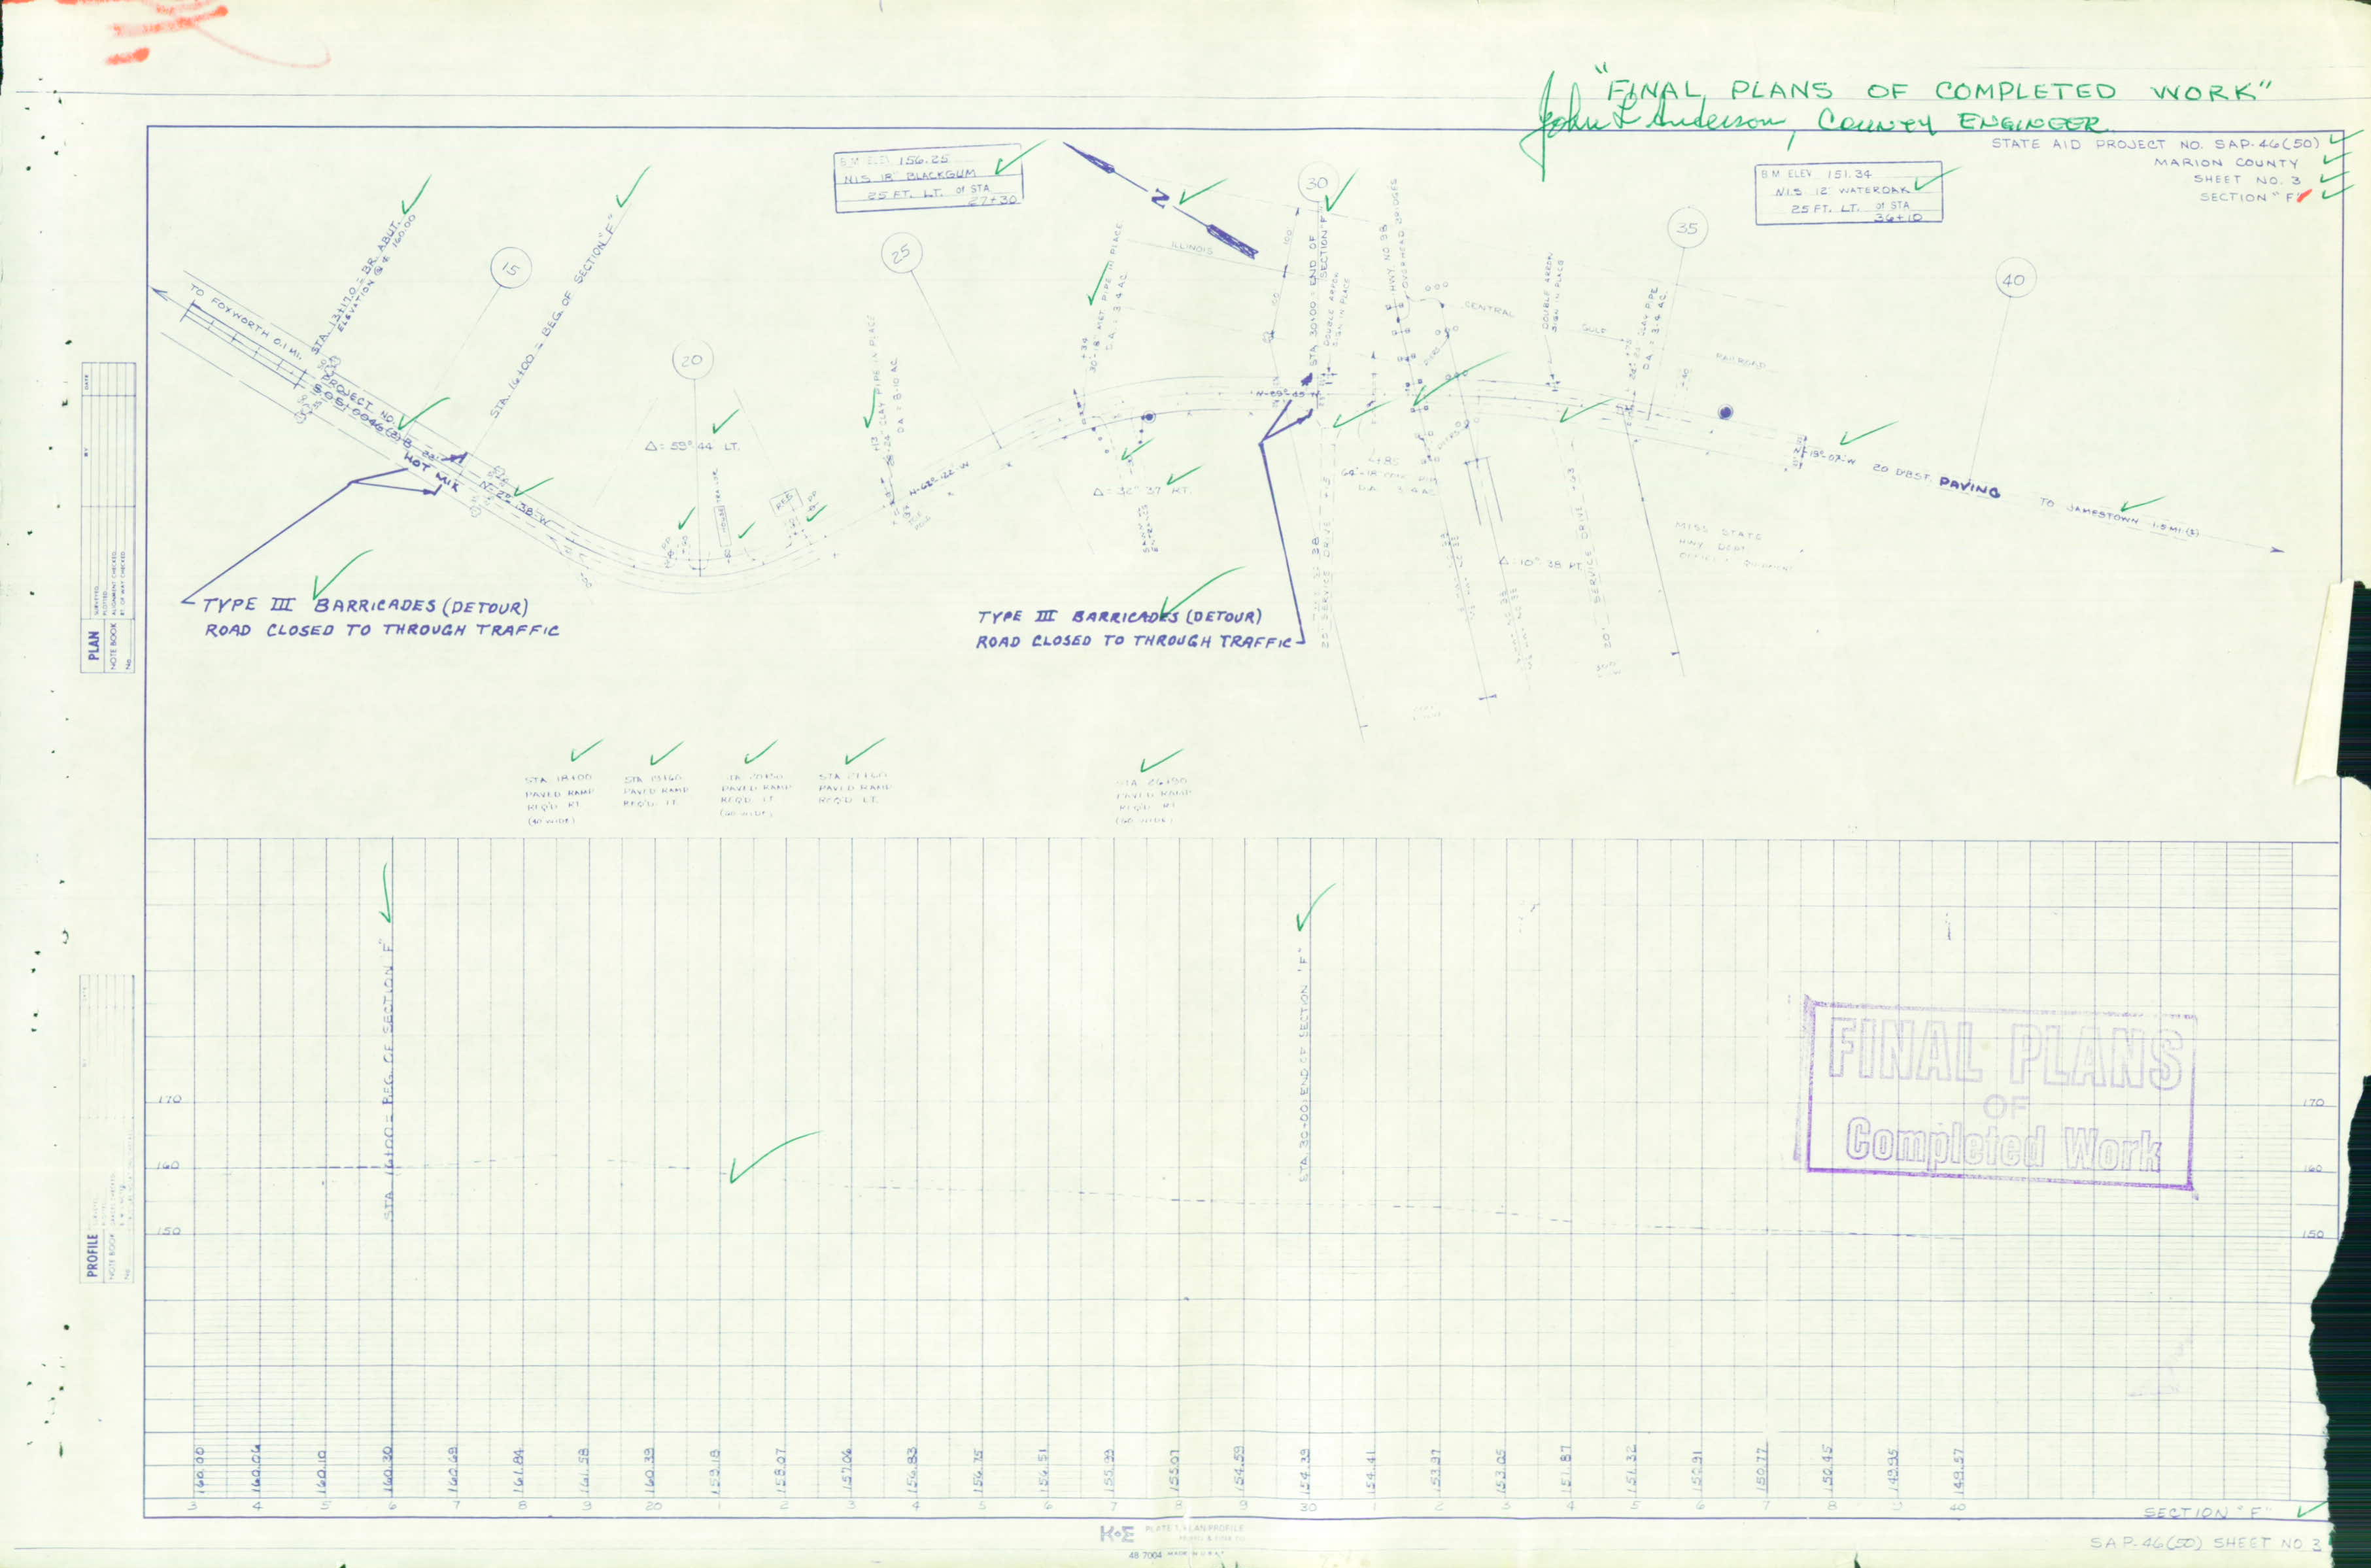 "FINAL PLANS OF COMPLETED WORK"
John L Anderson, COUNTY ENGINEER
STATE AID PROJECT NO. SAP-46(50)
MARION COUNTY
SHEET NO. 3
SECTION "F"
B.M. ELEV. 156.25
N.I.S. 18" BLACKGUM
25 FT. LT. of STA
27+30
B.M. ELEV. 151.34
N.I.S. 12" WATEROAK
25 FT. LT. of STA
36+10
N
15
20
25
30
35
40
TO FOXWORTH 0.1 MI.
STA. 13+17.0 = BR. ABUT.
ELEVATION @ ℄ 160.00
STA. 16+00 = BEG. OF SECTION "F"
PROJECT NO.
HOT MIX
N-22°-38'-W
Δ = 59° 44' LT.
N-62°-22'-W
24" CLAY PIPE IN PLACE
D.A. = 8-10 AC.
+34
30'-18" MET. PIPE IN PLACE
D.A. = 3.4 AC.
Δ = 32° 37' RT.
ILLINOIS
CENTRAL
GULF
RAILROAD
STA 30+00 = END OF
SECTION "F"
DOUBLE ARROW
SIGN IN PLACE
HWY. NO. 98
OVERHEAD BRIDGES
DOUBLE ARROW
SIGN IN PLACE
CLAY PIPE
D.A. = 3.4 AC.
Δ = 10° 38' RT.
20' SERVICE DRIVE
20' SERVICE DRIVE +63
MISS. STATE
HWY. DEPT.
N-19°-07'-W
20' DBST. PAVING
TO JAMESTOWN 1.5 MI.(±)
TYPE III BARRICADES (DETOUR)
ROAD CLOSED TO THROUGH TRAFFIC
TYPE III BARRICADES (DETOUR)
ROAD CLOSED TO THROUGH TRAFFIC
STA 18+00
PAVED RAMP
REQ'D. RT.
(40' WIDE)
PAVED RAMP
REQ'D. LT.
PAVED RAMP
REQ'D. LT.
(60' WIDE)
PAVED RAMP
REQ'D. LT.
STA 26+90
PAVED RAMP
REQ'D. RT.
(60' WIDE)
PLAN
NOTE BOOK
No.
SURVEYED
PLOTTED
ALIGNMENT CHECKED
RT. OF WAY CHECKED
BY
DATE
PROFILE
NOTE BOOK
No.
STA. 16+00 = BEG. OF SECTION "F"
STA 30+00 = END OF SECTION "F"
FINAL PLANS
OF
Completed Work
170
160
150
170
160
150
160.00 160.06 160.10 160.30 160.69 161.84 161.58 160.39 159.18 158.07 157.06 156.83 156.75 156.51 155.99 155.07 154.59 154.39 154.41 153.97 153.05 151.87 151.32 150.91 150.77 150.45 149.95 149.57
3 4 5 6 7 8 9 20 1 2 3 4 5 6 7 8 9 30 1 2 3 4 5 6 7 8 9 40
SECTION "F"
K+E
PLATE 1, PLAN/PROFILE
48 7004
SAP-46(50) SHEET NO 3